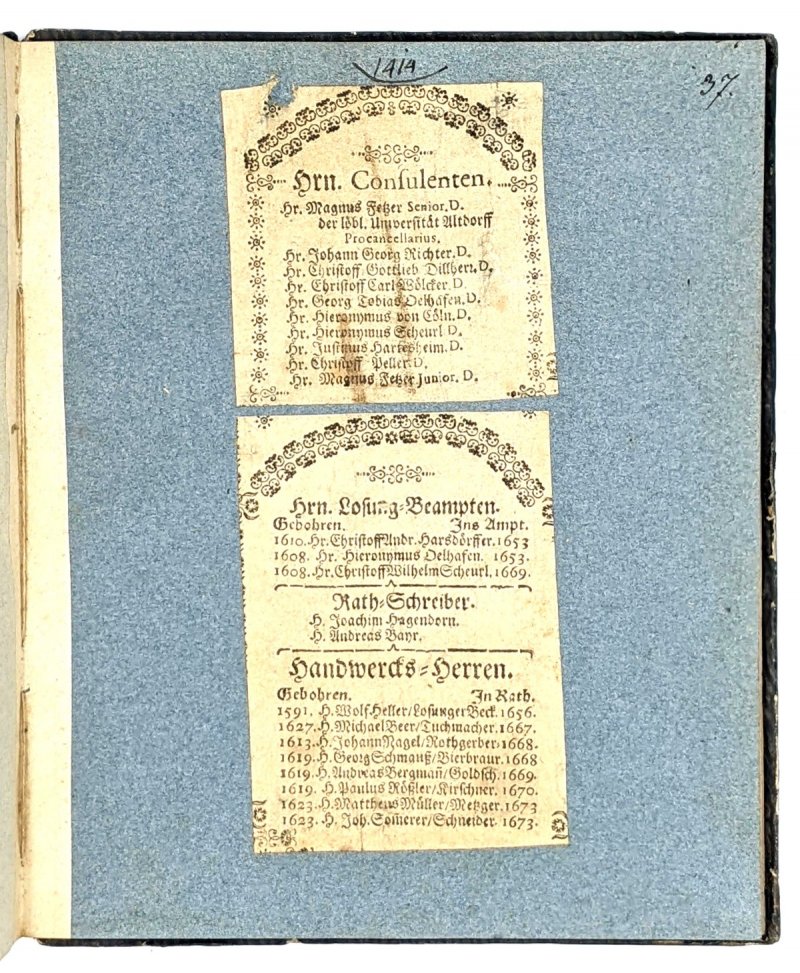 1414
37.
Hrn. Consulenten.
Hr. Magnus Fetzer Senior. D.
der löbl. Universität Altdorff
Procancellarius.
Hr. Johann Georg Richter. D.
Hr. Christoff Gottlieb Dillherr. D.
Hr. Christoff Carl Wölcker. D.
Hr. Georg Tobias Oelhafen. D.
Hr. Hieronymus von Cöln. D.
Hr. Hieronymus Scheurl D.
Hr. Justinus Hartesheim. D.
Hr. Christoff Peller. D.
Hr. Magnus Fetzer Junior. D.
Hrn. Losung-Beampten.
Gebohren. Ins Ampt.
1610. Hr. Christoff Andr. Harsdörffer. 1653
1608. Hr. Hieronymus Oelhafen. 1653.
1608. Hr. Christoff Wilhelm Scheurl. 1669.
Rath-Schreiber.
H. Joachim Hagendorn.
H. Andreas Bayr.
Handwercks-Herren.
Gebohren. In Rath.
1591. H. Wolf Heller/Losunger Beck. 1656.
1627. H. Michael Beer/Tuchmacher. 1667.
1613. H. Johann Nagel/Rothgerber. 1668.
1619. H. Georg Schmauß/Bierbraur. 1668
1619. H. Andreas Bergmañ/Goldsch. 1669.
1619. H. Paulus Rößler/Kirschner. 1670.
1623. H. Mattheus Müller/Metzger. 1673
1623. H. Joh. Som̃erer/Schneider. 1673.